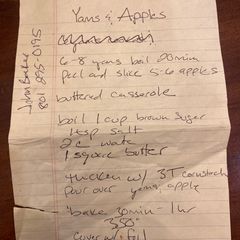 Yams & Apples
6-8 yams boil 20min
peel and slice 5-6 apples
buttered casserole
boil 1 cup brown sugar
1tsp salt
2c water
1 square butter
thicken w/ 3T cornstarch
pour over yams, apple
bake 30min - 1hr
350°
cover w/ foil
John Baker
801 295-0195